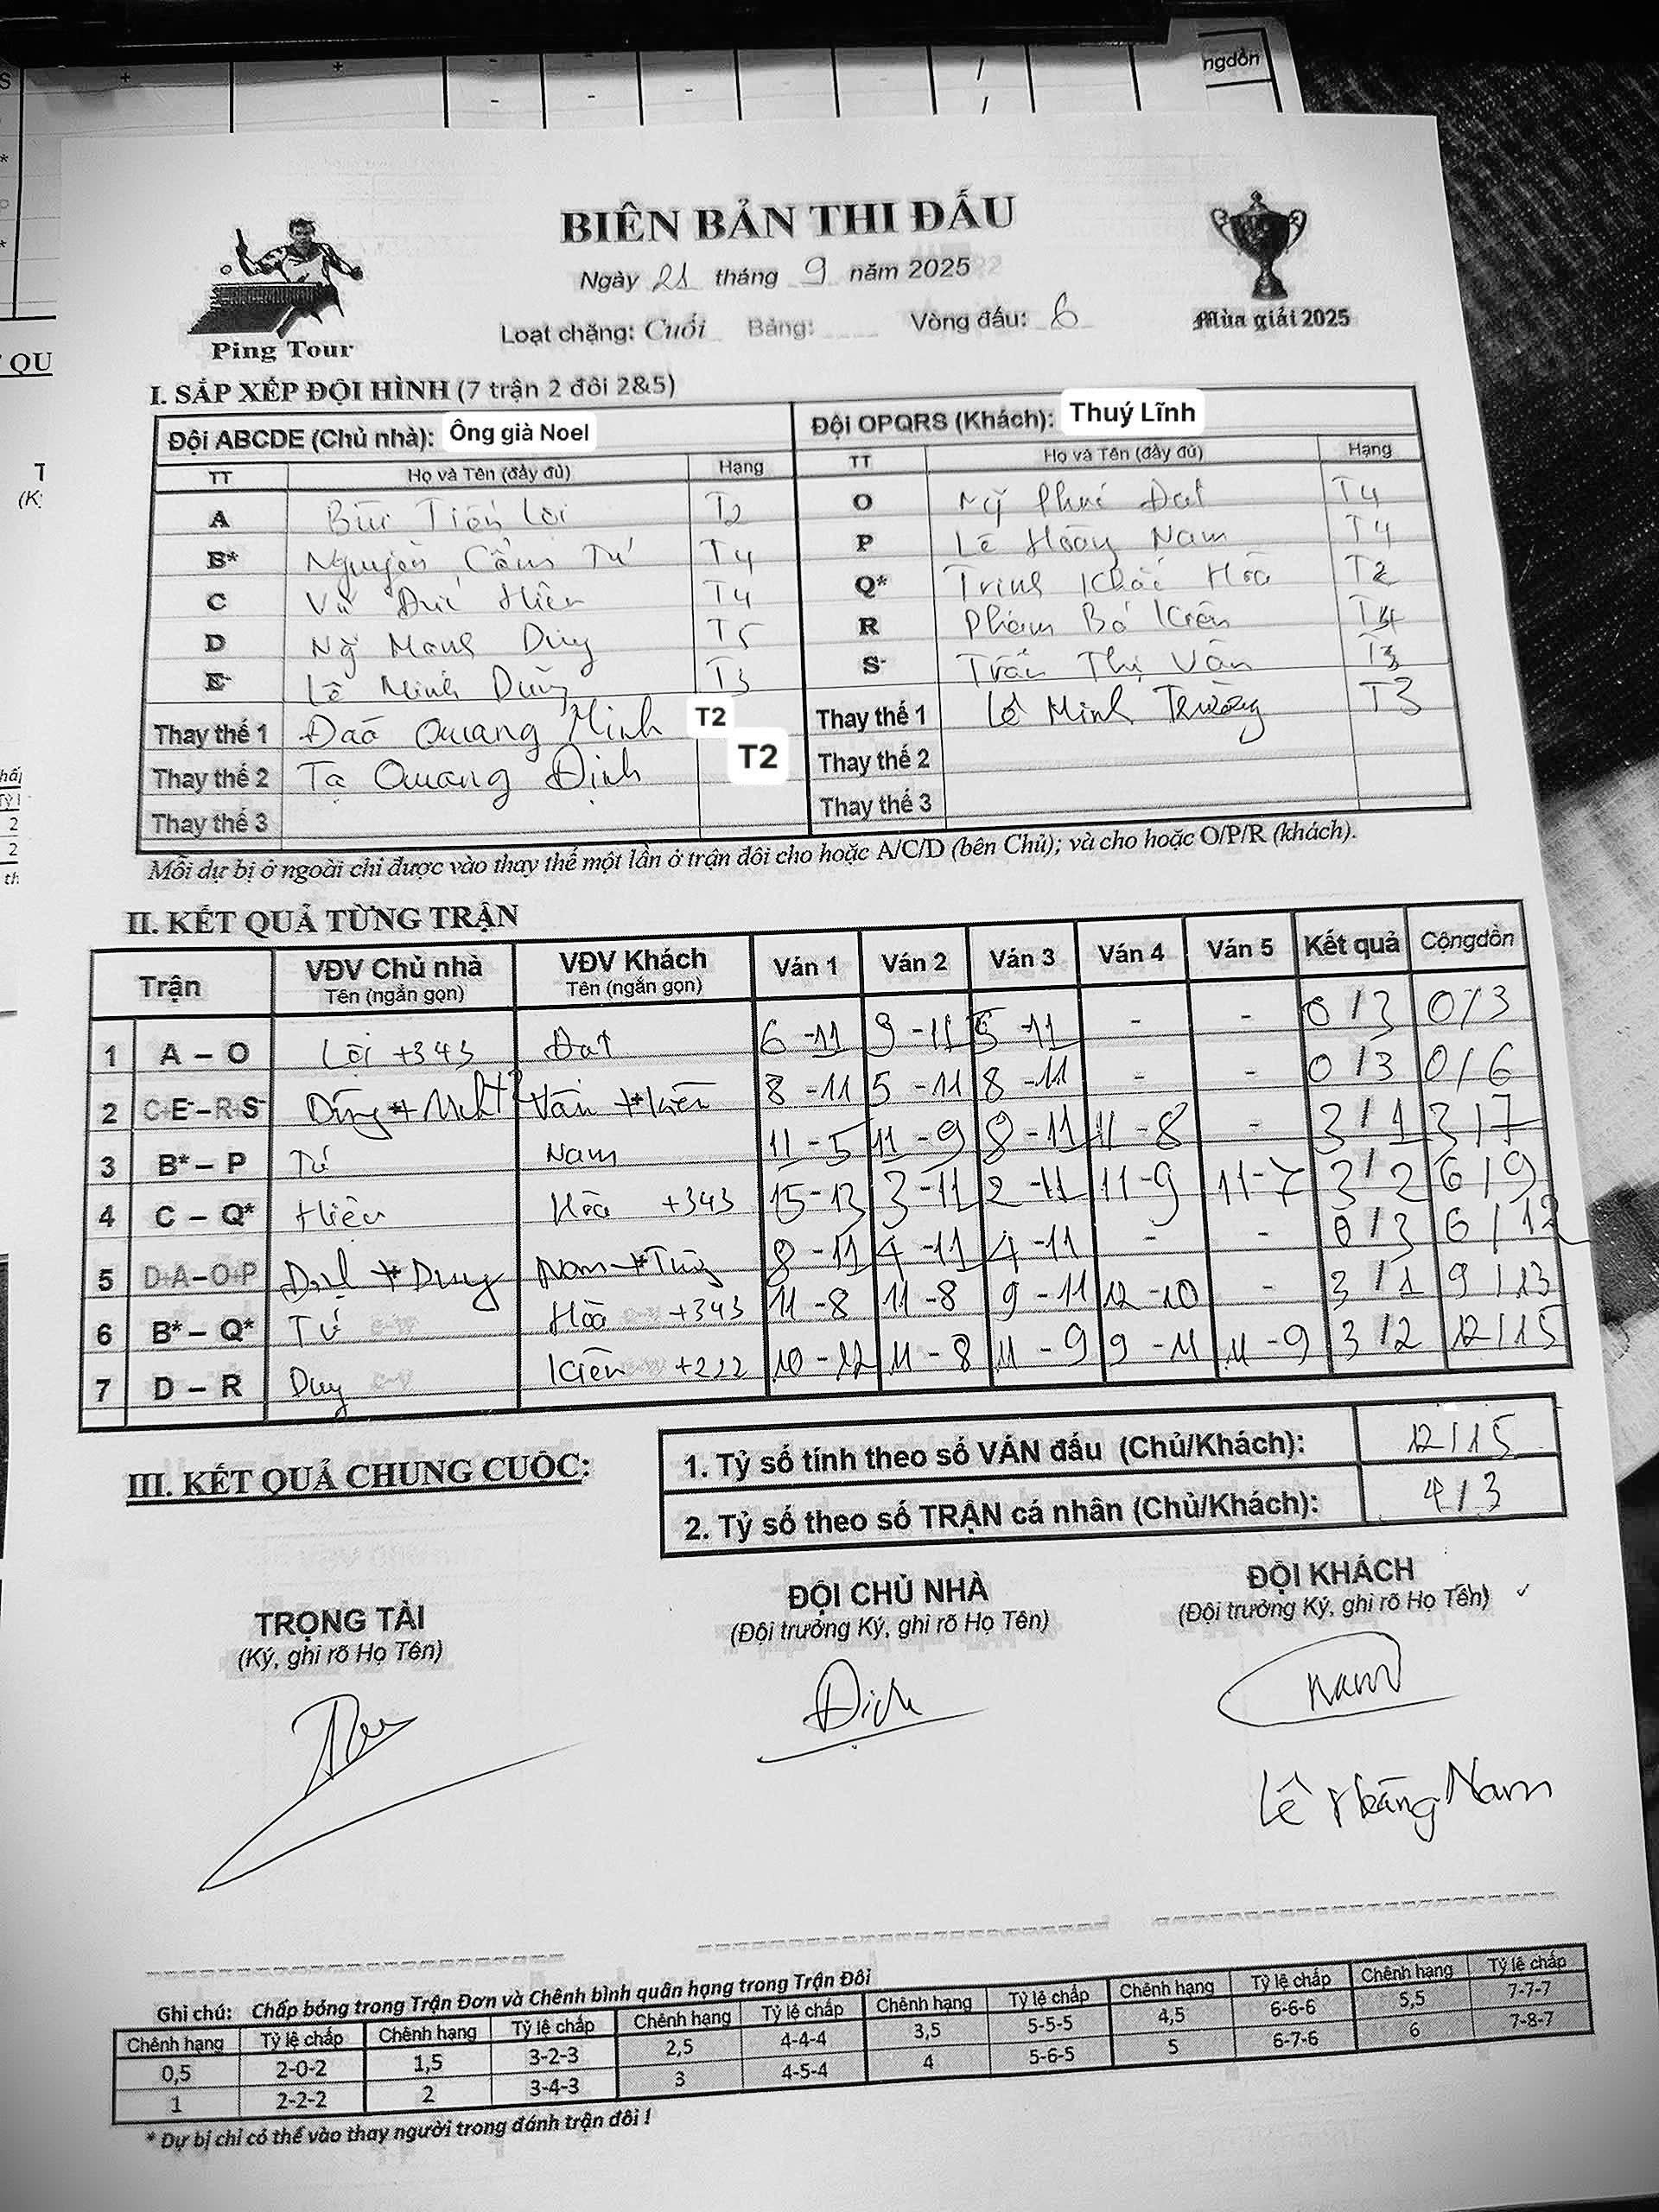 ngdồn
BIÊN BẢN THI ĐẤU
Ngày 21 tháng 9 năm 2025
Loạt chặng: Cuối Bảng: Vòng đấu: 6
Ping Tour
Mùa giải 2025
I. SẮP XẾP ĐỘI HÌNH (7 trận 2 đôi 2&5)
Đội ABCDE (Chủ nhà): Ông già Noel Đội OPQRS (Khách): Thuý Lĩnh
TT Họ và Tên (đầy đủ) Hạng TT Họ và Tên (đầy đủ) Hạng
A Bùi Tiến Lợi T2 O Ng Phú Đạt T4
B* Nguyễn Cẩm Tú T4 P Lê Hoàng Nam T4
C Vũ Đức Hiên T4 Q* Trịnh Khắc Hòa T2
D Ng Mạnh Duy T5 R Phạm Bá Kiên T4
E- Lê Minh Dũng T3 S- Trần Thị Vân T3
Thay thế 1 Đào Quang Minh T2 Thay thế 1 Lê Minh Trường T3
Thay thế 2 Tạ Quang Định T2 Thay thế 2
Thay thế 3 Thay thế 3
Mỗi dự bị ở ngoài chỉ được vào thay thế một lần ở trận đôi cho hoặc A/C/D (bên Chủ); và cho hoặc O/P/R (khách).
II. KẾT QUẢ TỪNG TRẬN
Trận VĐV Chủ nhà VĐV Khách Ván 1 Ván 2 Ván 3 Ván 4 Ván 5 Kết quả Cộngdồn
Tên (ngắn gọn) Tên (ngắn gọn)
1 A – O Lợi +343 Đạt 6 - 11 9 - 11 5 - 11 - - 0 / 3 0 / 3
2 C+E- – R+S- Dũng + Vân + Kiên 8 - 11 5 - 11 8 - 11 - - 0 / 3 0 / 6
3 B* – P Tú Nam 11 - 5 11 - 9 8 - 11 11 - 8 - 3 / 1 3 / 7
4 C – Q* Hiên Hòa +343 15 - 13 3 - 11 2 - 11 11 - 9 11 - 7 3 / 2 6 / 9
5 D+A – O+P Định + Duy Nam + 8 - 11 4 - 11 4 - 11 - - 0 / 3 6 / 12
6 B* – Q* Tú Hòa +343 11 - 8 11 - 8 9 - 11 12 - 10 - 3 / 1 9 / 13
7 D – R Duy Kiên +222 10 - 12 11 - 8 11 - 9 9 - 11 11 - 9 3 / 2 12 / 15
III. KẾT QUẢ CHUNG CUỘC:
1. Tỷ số tính theo số VÁN đấu (Chủ/Khách): 12 / 15
2. Tỷ số theo số TRẬN cá nhân (Chủ/Khách): 4 / 3
TRỌNG TÀI ĐỘI CHỦ NHÀ ĐỘI KHÁCH
(Ký, ghi rõ Họ Tên) (Đội trưởng Ký, ghi rõ Họ Tên) (Đội trưởng Ký, ghi rõ Họ Tên)
Định Nam
Lê Hoàng Nam
Ghi chú: Chấp bóng trong Trận Đơn và Chênh bình quân hạng trong Trận Đôi
Chênh hạng Tỷ lệ chấp Chênh hạng Tỷ lệ chấp Chênh hạng Tỷ lệ chấp Chênh hạng Tỷ lệ chấp Chênh hạng Tỷ lệ chấp Chênh hạng Tỷ lệ chấp
0,5 2-0-2 1,5 3-2-3 2,5 4-4-4 3,5 5-5-5 4,5 6-6-6 5,5 7-7-7
1 2-2-2 2 3-4-3 3 4-5-4 4 5-6-5 5 6-7-6 6 7-8-7
* Dự bị chỉ có thể vào thay người trong đánh trận đôi !